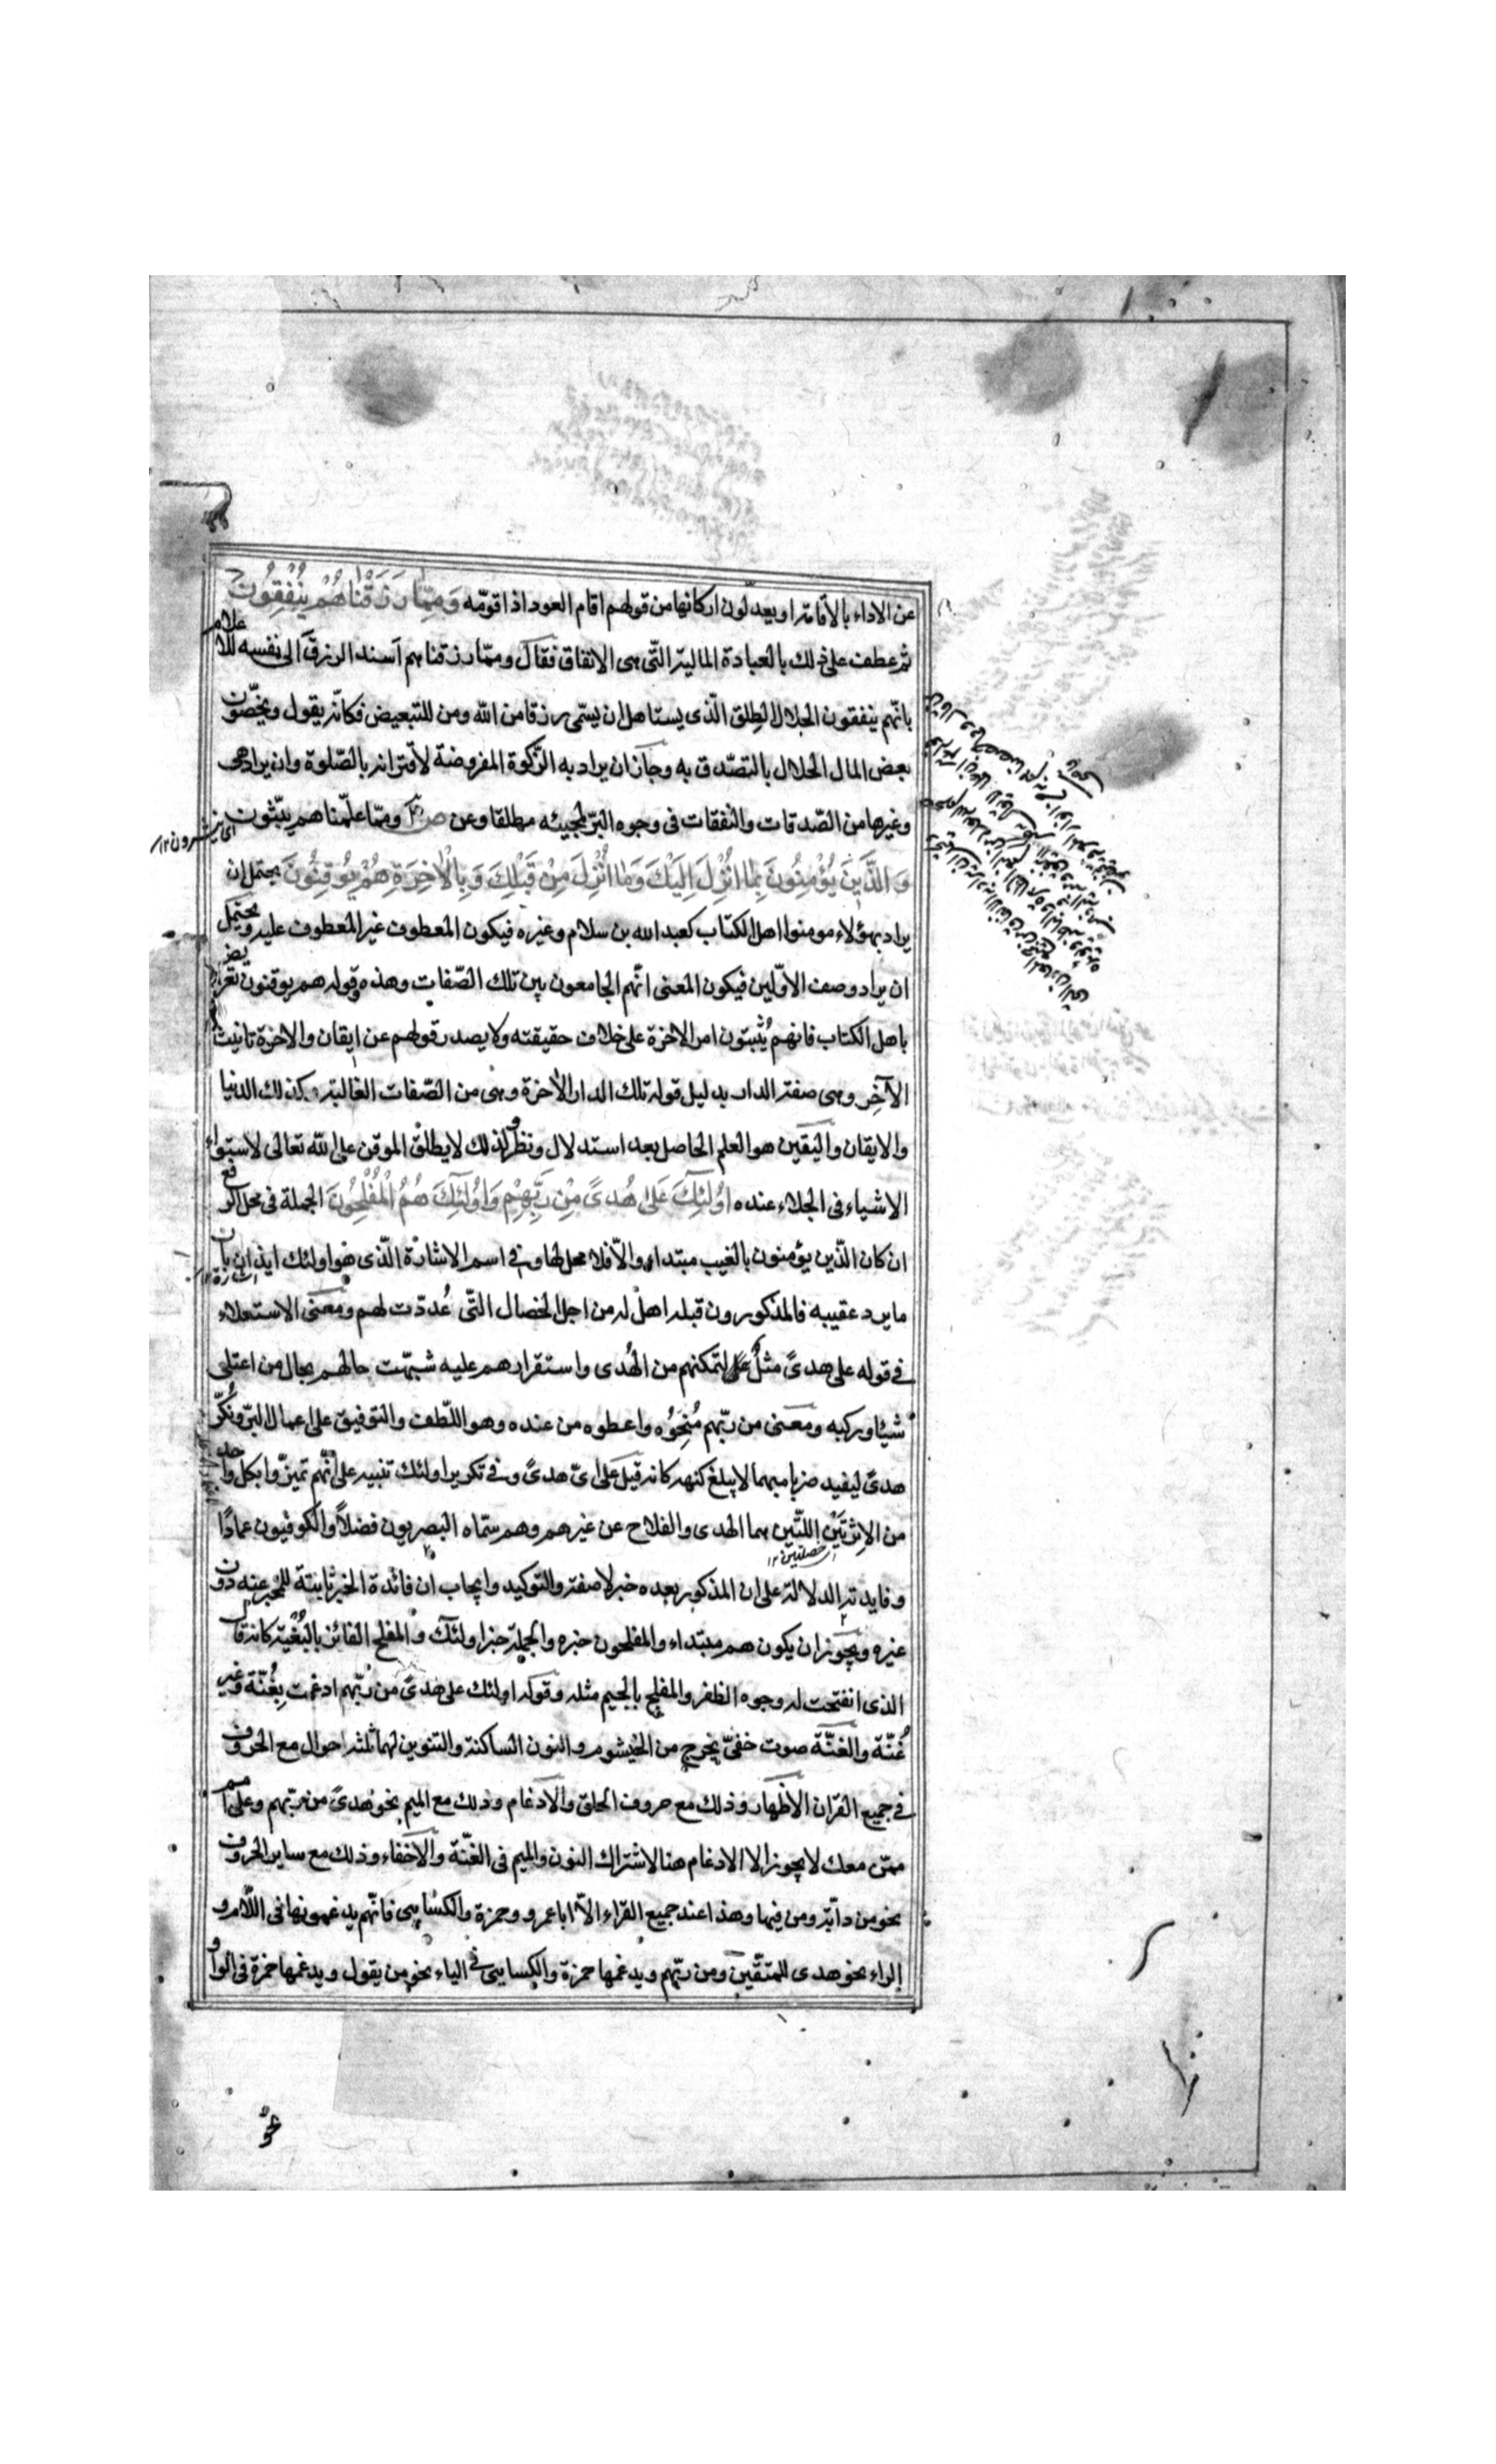 عن الاداء بالاقامة او يعدّلون اركانها من قولهم اقام العود اذا قومّه وَمِمَّا رَزَقْنَاهُمْ يُنْفِقُونَ
ثم عطف على ذلك بالعبادة المالية التّى هى الانفاق فقال وممّا رزقناهم اسند الرزق الى نفسه للاعلام
بانّهم ينفقون الحلال الطلق الّذى يستاهل ان يسمّى رزقا من الله ومن للتبعيض فكانّه يقول ويخصّون
بعض المال الحلال بالتصدّق به وجاز ان يراد به الزّكوة المفروضة لاقترانه بالصّلوة وان يراد هى
وغيرها من الصّدقات والنفقات فى وجوه البرّ لمجيئه مطلقا وعن ص وممّا علّمناهم يبّثون
وَالَّذِينَ يُؤْمِنُونَ بِمَا اُنْزِلَ اِلَيْكَ وَمَا اُنْزِلَ مِنْ قَبْلِكَ وَبِالْاٰخِرَةِ هُمْ يُوقِنُونَ يحتمل ان
يراد بهؤلاء مومنوا اهل الكتاب كعبد الله بن سلام وغيره فيكون المعطوف غير المعطوف عليه ويحتمل
ان يراد وصف الاوّلين فيكون المعنى انّهم الجامعون بين تلك الصّفات وهذه وقوله هم يوقنون تعريض
باهل الكتاب فانهم يُثبتون امر الاخرة على خلاف حقيقته ولا يصدر قولهم عن ايقان والاخرة تانيث
الآخِر وهى صفة الدار بدليل قوله تلك الدار الاخرة وهى من الصّفات الغالبة وكذلك الدنيا
والايقان واليقين هو العلم الحاصل بعد استدلال ونظر ولذلك لا يطلق الموقن على الله تعالى لاستواء
الاشياء فى الجلاء عنده اُولٰئِكَ عَلىٰ هُدىً مِنْ رَبِّهِمْ وَاُولٰئِكَ هُمُ الْمُفْلِحُونَ الجملة فى محل الرفع
ان كان الّذين يؤمنون بالغيب مبتداء والاّ فلا محل لها وفى اسم الاشارة الّذى هو اولئك ايذان بان
ما يرد عقيبه فالمذكورون قبله اهل له من اجل الخصال التّى عُدّدت لهم ومعنى الاستعلاء
فى قوله على هدىً مثلٌ لتمكنهم من الهُدى واستقرارهم عليه شبهّت حالهم بحال من اعتلى
شيئا وركبه ومعنى من ربّهم مُنِحُوُه واعطوه من عنده وهو اللّطف والتوفيق على اعمال البرّ ونُكّر
هدىً ليفيد ضربا مبهما لا يبلغ كنهه كانه قيل على اىّ هدىً وفى تكرير اولئك تنبيه على انّهم تميّزوا بكل واحد
من الاِثرَتَيْنِ اللّتين هما الهدى والفلاح عن غيرهم وهم سمّاه البصريون فضلاً والكوفيون عمادًا
اى خصلتين ١٢
وفايدته الدلالة على ان المذكور بعده خبر لا صفة والتوكيد وايجاب ان فائدة الخبر ثابتة للمخبر عنه دون
غيره ويجوز ان يكون هم مبتداء والمفلحون خبره والجملة خبر اولئك والمفلح الفائز بالبُغْيَة كانه قال
الذى انفتحت له وجوه الظفر والمفلج بالجيم مثله وقوله اولئك على هدىً من ربّهم ادغمت بِغُنّة وغير
غُنّة والغنّة صوت خفىّ يخرج من الخيشوم والنون الساكنة والتنوين لهما ثلثة احوال مع الحروف
فى جميع القران الاظهار وذلك مع حروف الحلق والادغام وذلك مع الميم نحو هدىً من ربّهم وعلى امم
ممّن معك لا يجوز الا الادغام هنا لاشتراك النون والميم فى الغنّة والاخفاء وذلك مع ساير الحروف
نحو من دابّة ومن فيها وهذا عند جميع القراء الاّ ابا عمرو وحمزة والكسايى فانّهم يدغمونها فى اللام و
الراء نحو هدى للمتّقين ومن ربّهم ويدغمها حمزة والكسايى فى الياء نحو من يقول ويدغمها حمزة فى الواو
نحو